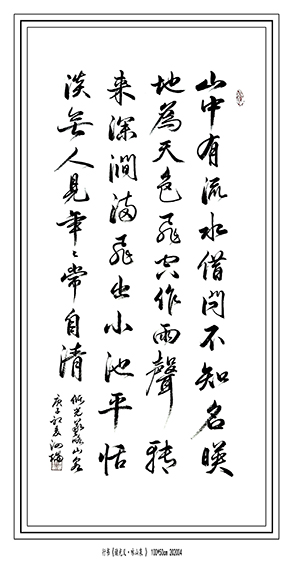 山中有流水借问不知名暎
地為天色飛空作雨聲轉
来深澗满飛出小池平恬
淡無人見年々常自清
储光羲咏山泉
庚子初夏
行书《储光羲·咏山泉 》 100*50cm 202004